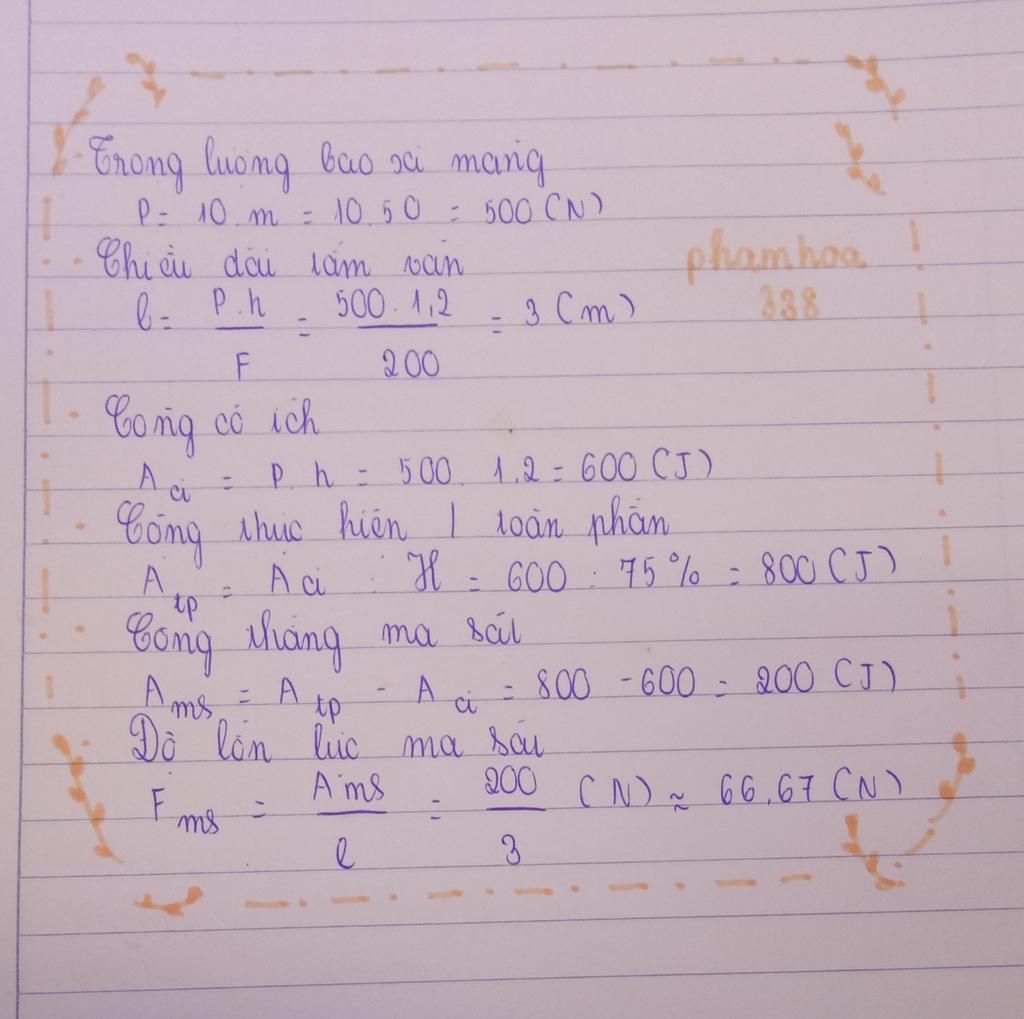 Trọng lượng bao xi măng
P = 10.m = 10.50 = 500 (N)
Chiều dài tấm ván
phamhoa
338
l = P.h / F = 500.1,2 / 200 = 3 (m)
Công có ích
A ci = P.h = 500.1,2 = 600 (J)
Công thực hiện / toàn phần
A tp = A ci : H = 600 : 75% = 800 (J)
Công thắng ma sát
A ms = A tp - A ci = 800 - 600 = 200 (J)
Độ lớn lực ma sát
F ms = A ms / l = 200 / 3 (N) ≈ 66,67 (N)